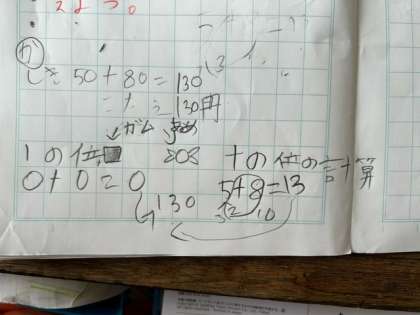 か
しき 50+80=130
こたえ 130円
ガム あめ
1の位
十の位の計算
0+0=0
5+8=13
130
2 10